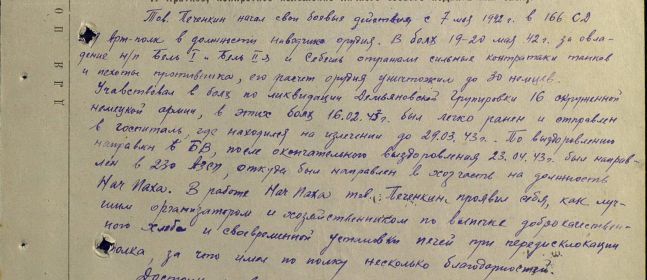 Тов. Печенкин начал свои боевые действия с 7 мая 1942 г. в 166 СД
Арт-полк в должности наводчика орудия. В боях 19-20 мая 42 г. за овла-
дение н/п Бель I и Бель II я и Себешь отражали сильные контратаки танков
и пехоты противника, его расчет орудия уничтожил до 20 немцев.
Учавствовал в боях по ликвидации Демьяновской Группировки 16 окруженной
немецкой армии, в этих боях 16.02.43г. был легко ранен и отправлен
в госпиталь, где находился на излечении до 29.03.43г. По выздоровлению
направлен в БВ, после окончательного выздоровления 23.04.43г. был направ-
лен в 230 АЗСП, откуда был направлен в хозчасть на должность
Нач ПАХа. В работе Нач ПАХа тов. Печенкин, проявил себя, как луч-
шим организатором и хозяйственником по выпечке доброкачествен-
ного хлеба и своевременной установки печей при передислокации
полка, за что имел по полку несколько благодарностей.
О П В Г Д